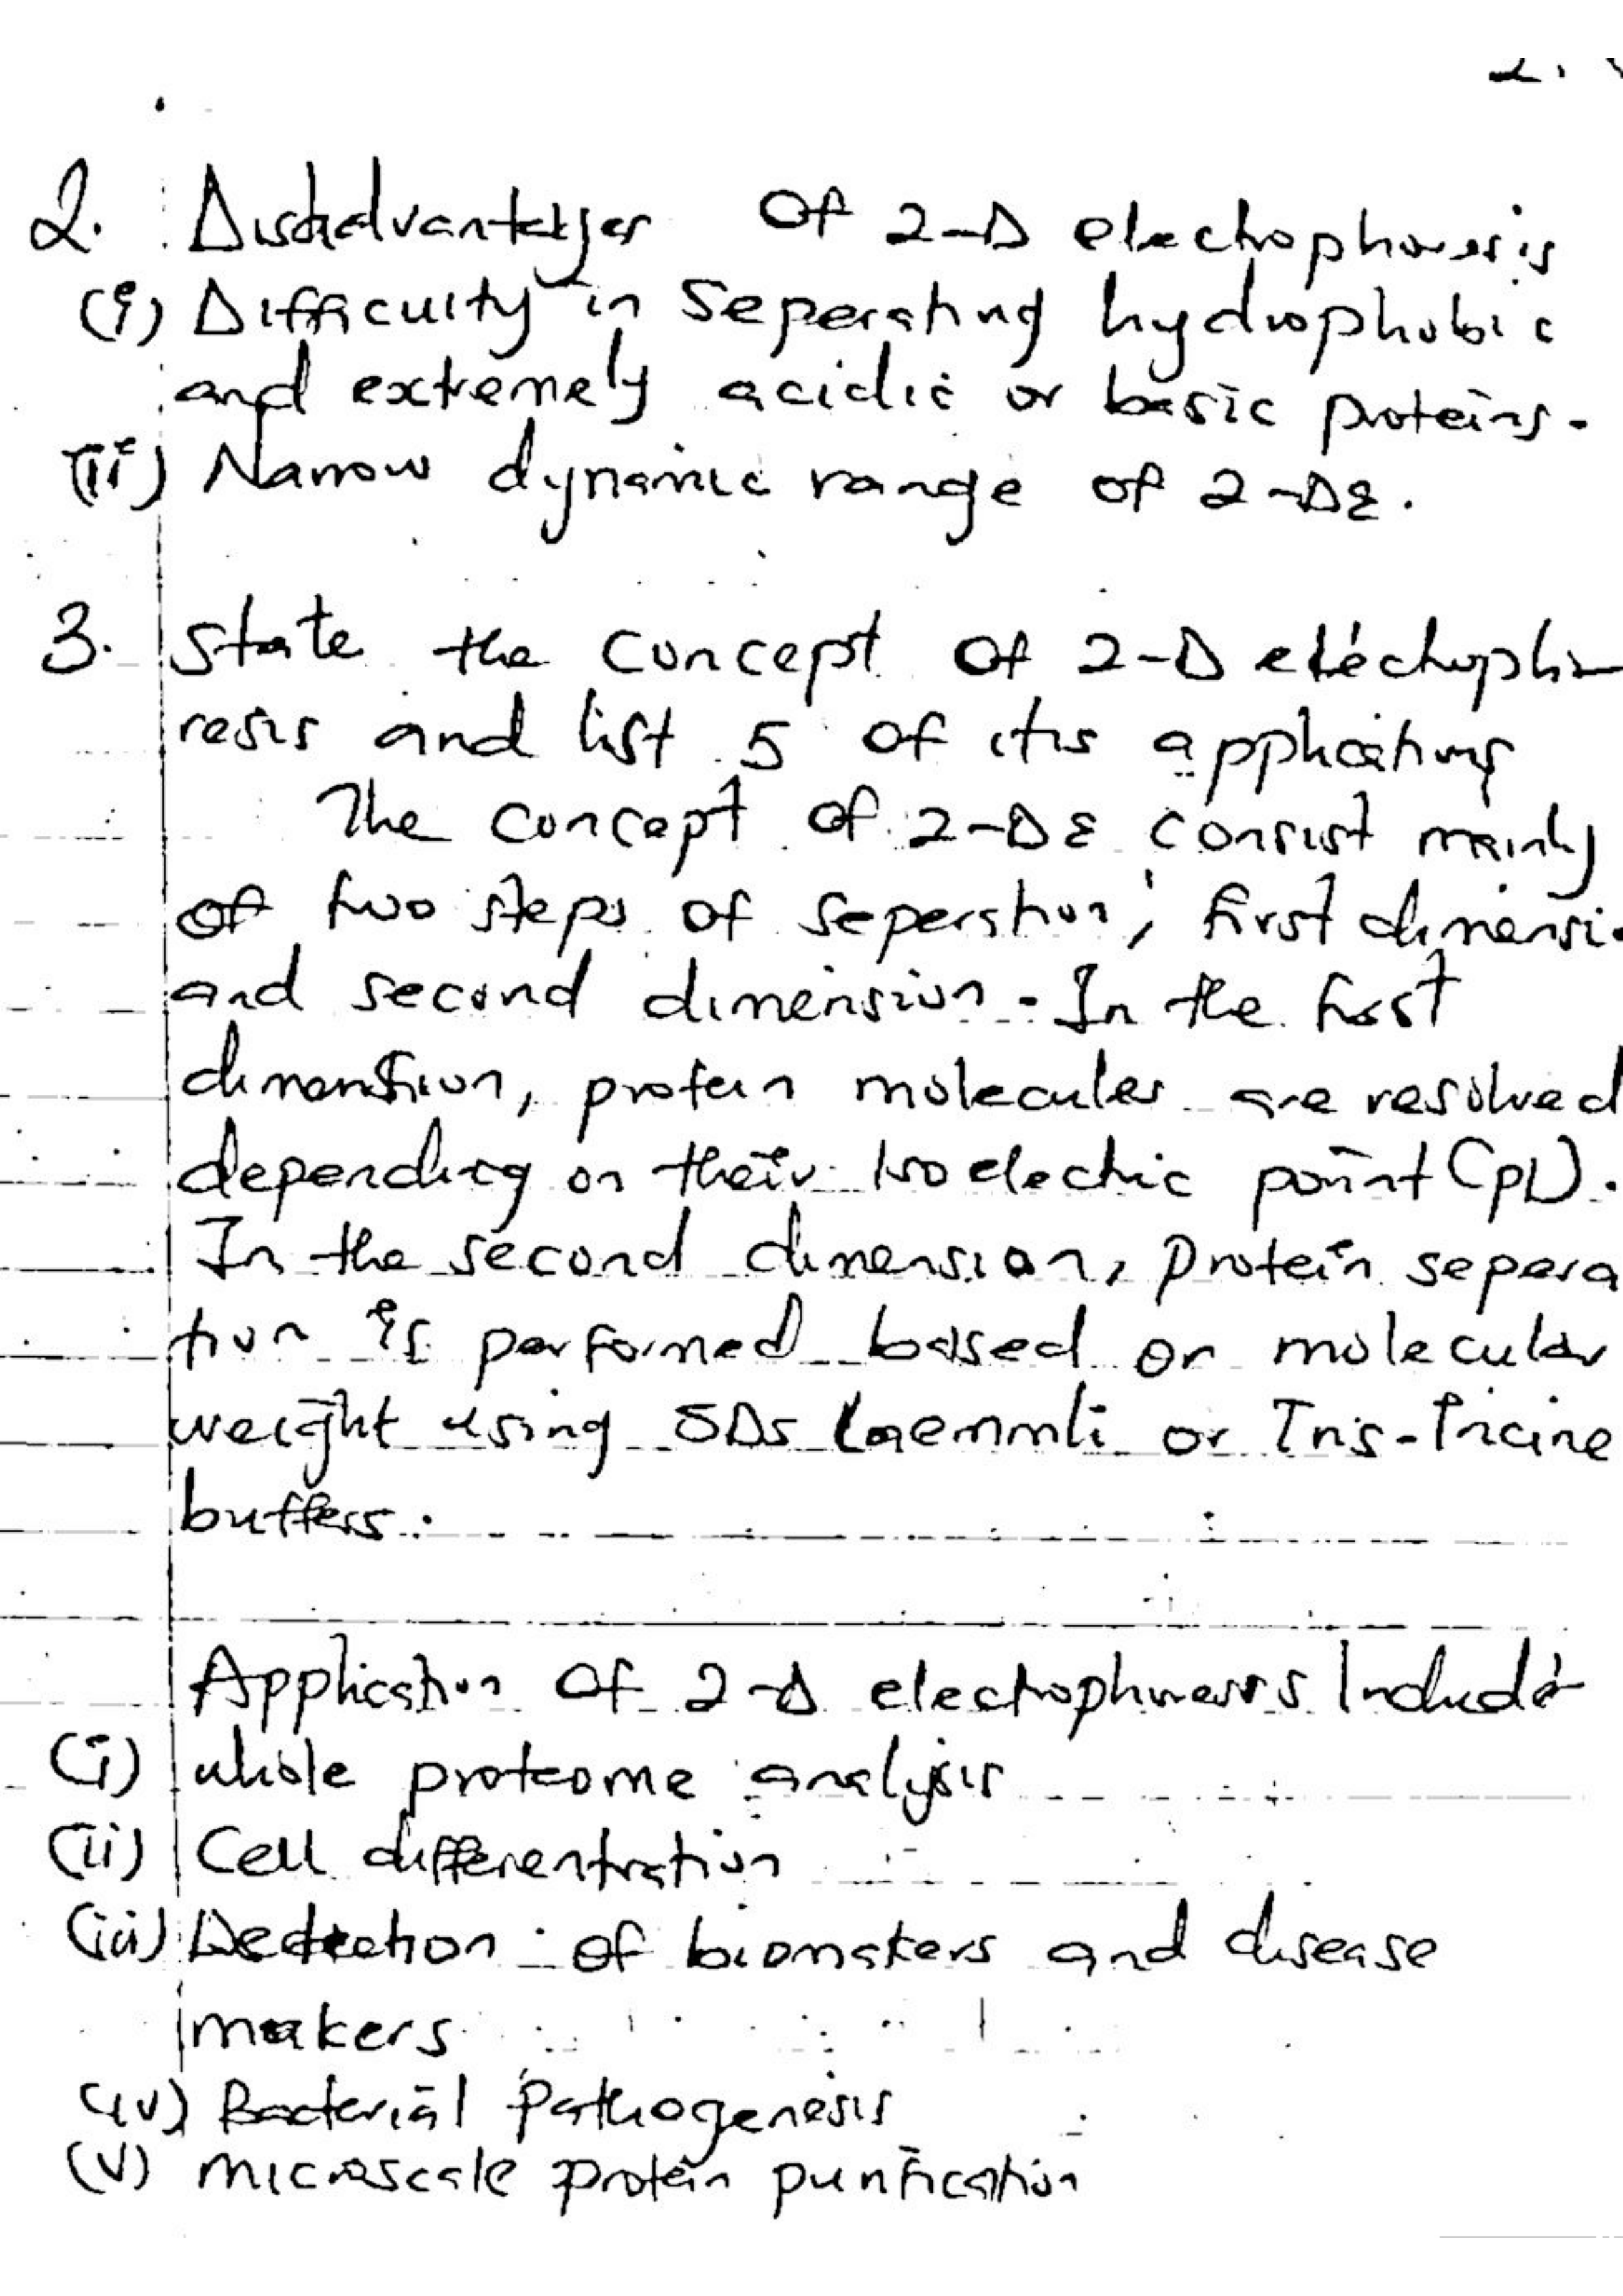 2.
2. Disadvantages Of 2-D electrophoresis
(i) Difficulty in Seperating hydrophobic
and extremely acidic or basic proteins.
(ii) Narrow dynamic range of 2-DE.
3. State the concept of 2-D electropho
resis and list 5 of its applications
The concept of 2-DE consist mainly
of two steps of seperation; first dimensi
and second dimension. In the first
dimension, protein molecules are resolved
depending on their Isoelectric point (pI).
In the second dimension, protein sepera
tion is performed based on molecular
weight using SDS Laemmli or Tris-Tricine
buffers.
Application Of 2-D electrophoresis Include
(i) whole proteome analysis
(ii) Cell differentiation
(iii) Detection of biomakers and disease
makers
(iv) Bacterial Pathogenesis
(v) microscale protein purification